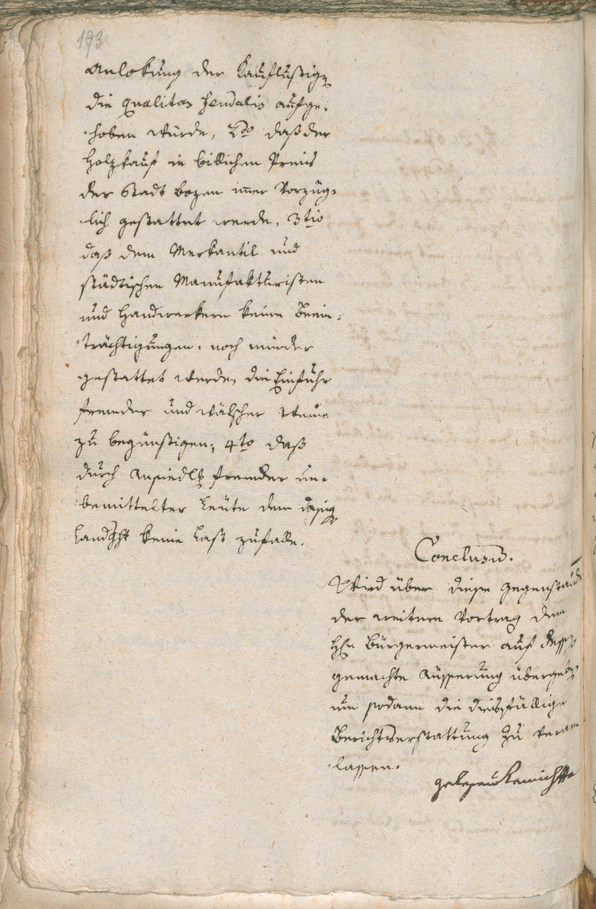 193
Anlokung der Kauflustigen
die qualitas feudalis aufge-
hoben würde, 2do daß der
Holzkauf in billichen Preis
der Stadt Bozen immer vorzüg-
lich gestattet werde, 3tio
daß dem Merkantil und
städtischen Manufakturisten
und Handwerkern keine Beein-
trächtigungen, noch minder
gestattet werde, die Einfuhr
fremder und wälscher Weine
zu begünstigen; 4to daß
durch Ansiedlg fremder un-
bemittelter Leute dem dasig
Landgcht keine Last zufalle.
Conclusum.
Wird über diese Gegenstände
der weitere Vortrag dem
Hr Bürgermeister auf
gemachte Äusserung übergeben
um sodann die diesfällige
Berichtserstattung zu veran-
lassen.
gelesen